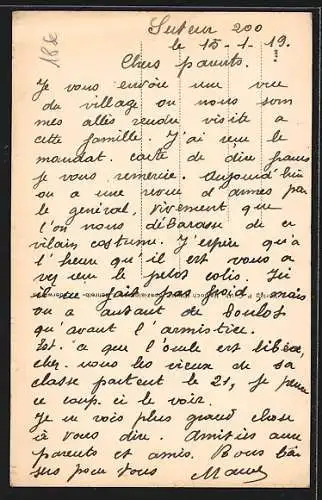 18e
Secteur 200
le 15-1-19.
Chers parents.
Je vous envoie une vue
du village ou nous som
mes allés rendre visite a
cette famille. J'ai reçu le
mandat. carte de dix francs
Je vous remercie. Aujourd'hui
on a une revue d'armes par
le général, Vivement que
l'on nous débarasse de ce
vilain costume. J'espère qu'a
l'heure qu'il est vous a
vez reçu le petit colis. Ici
il ne fait pas froid mais
on a autant de boulot
qu'avant l'armistice.
Est-ce que l'oncle est libéré,
chez nous les vieux de sa
classe partent le 21, je pense
ce coup-ci le voir.
Je ne vois plus grand chose
à vous dire. Amitiés aux
parents et amis. Bons bai
sers pour vous